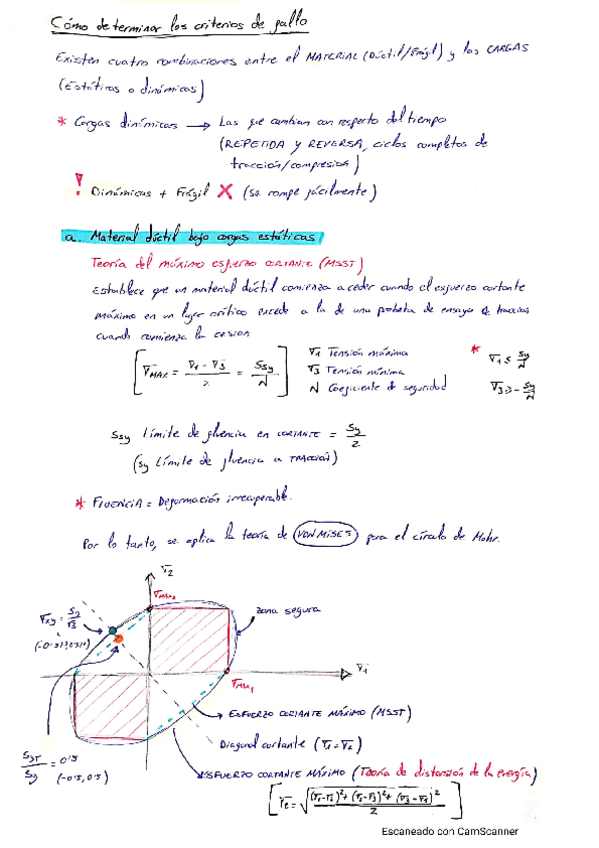 Cómo determinar los criterios de fallo
Existen cuatro combinaciones entre el MATERIAL (Dúctil/Frágil) y las CARGAS
(Estáticas o dinámicas)
* Cargas dinámicas → Las que cambian con respecto del tiempo
(REPETIDA Y REVERSA, ciclos completos de
tracción/compresión)
! Dinámicas + Frágil X (se rompe fácilmente)
a. Material dúctil bajo cargas estáticas
Teoría del máximo esfuerzo CORTANTE (MSST)
Establece que un material dúctil comienza a ceder cuando el esfuerzo cortante
máximo en un lugar crítico excede a la de una probeta de ensayo de tracción
cuando comienza la cesión
[τMAX = (σ1 - σ3)/2 = Ssy/N]
σ1 Tensión máxima
σ3 Tensión mínima
N Coeficiente de seguridad
* σ1 ≤ Sy/N
σ3 ≥ - Sy/N
Ssy límite de fluencia en CORTANTE = Sy/2
(Sy Límite de fluencia a TRACCIÓN)
* FLUENCIA = Deformación irrecuperable.
Por lo tanto, se aplica la teoría de VON MISES para el círculo de Mohr.
σ2
σMax2
zona segura
τxy = Sy/√3
σ1
σMax1
ESFUERZO CORTANTE MÁXIMO (MSST)
Diagonal cortante (σ1 = σ2)
SyT/Sy = 0'5
(-0'5, 0'5)
ESFUERZO CORTANTE MÁXIMO (Teoría de distorsión de la energía)
[σe = √(((σ1-σ2)² + (σ2-σ3)² + (σ3-σ1)²)/2)]
Escaneado con CamScanner